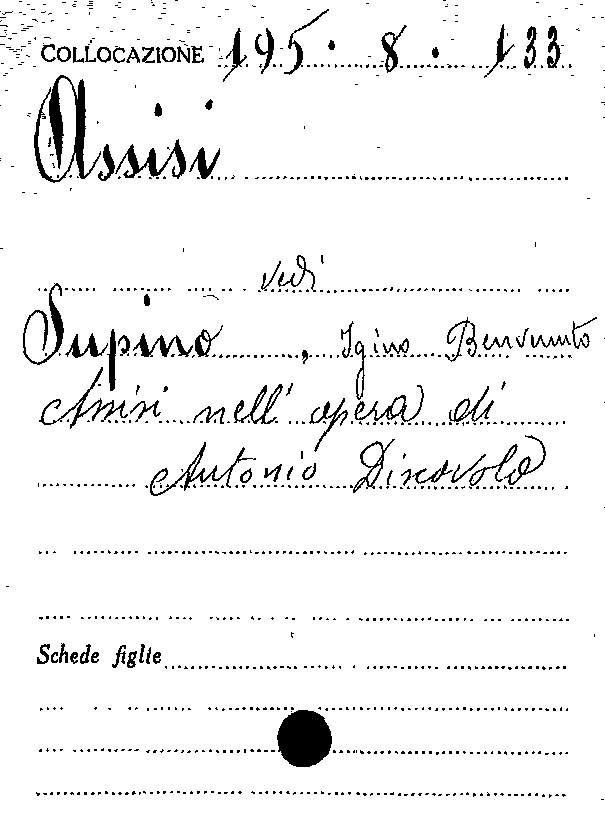 COLLOCAZIONE 195. 8. 133
Assisi
vedi
Supino, Igino Benvenuto
Assisi nell'opera di
Antonio Discovolo
Schede figlie